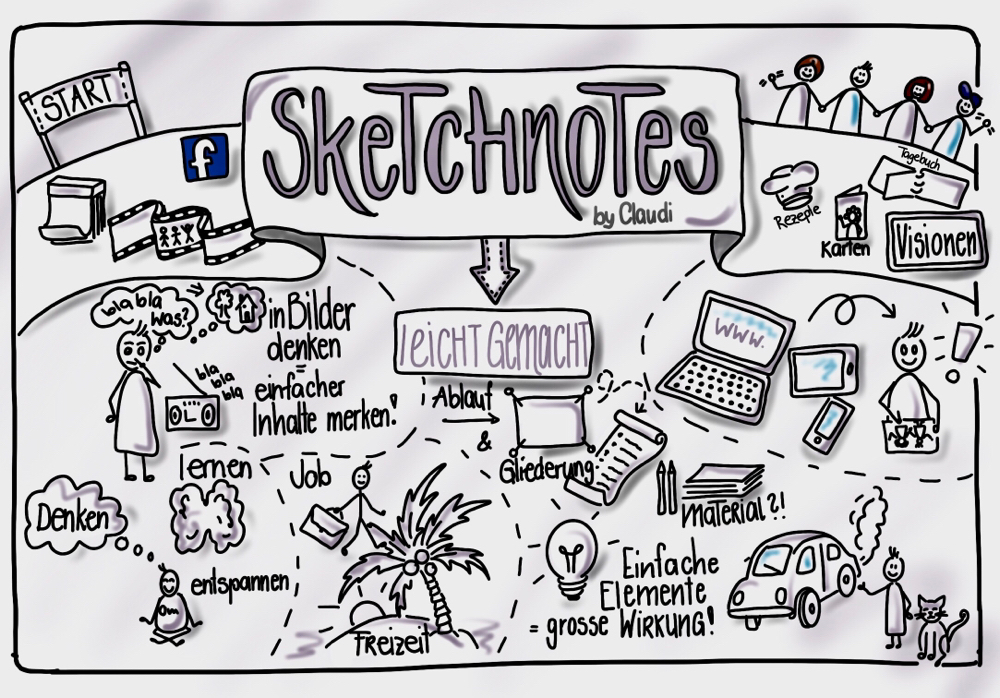 START
f
SKETCHNOTES
by Claudi
Rezepte
Karten
Tagebuch
Visionen
leicht Gemacht
bla bla
was?
in Bilder
denken
=
einfacher
Inhalte merken!
bla
bla
bla
Ablauf
&
Gliederung
www.
!
lernen
Denken
entspannen
Om
Job
Freizeit
Material?!
Einfache
Elemente
= grosse WIRKUNG!